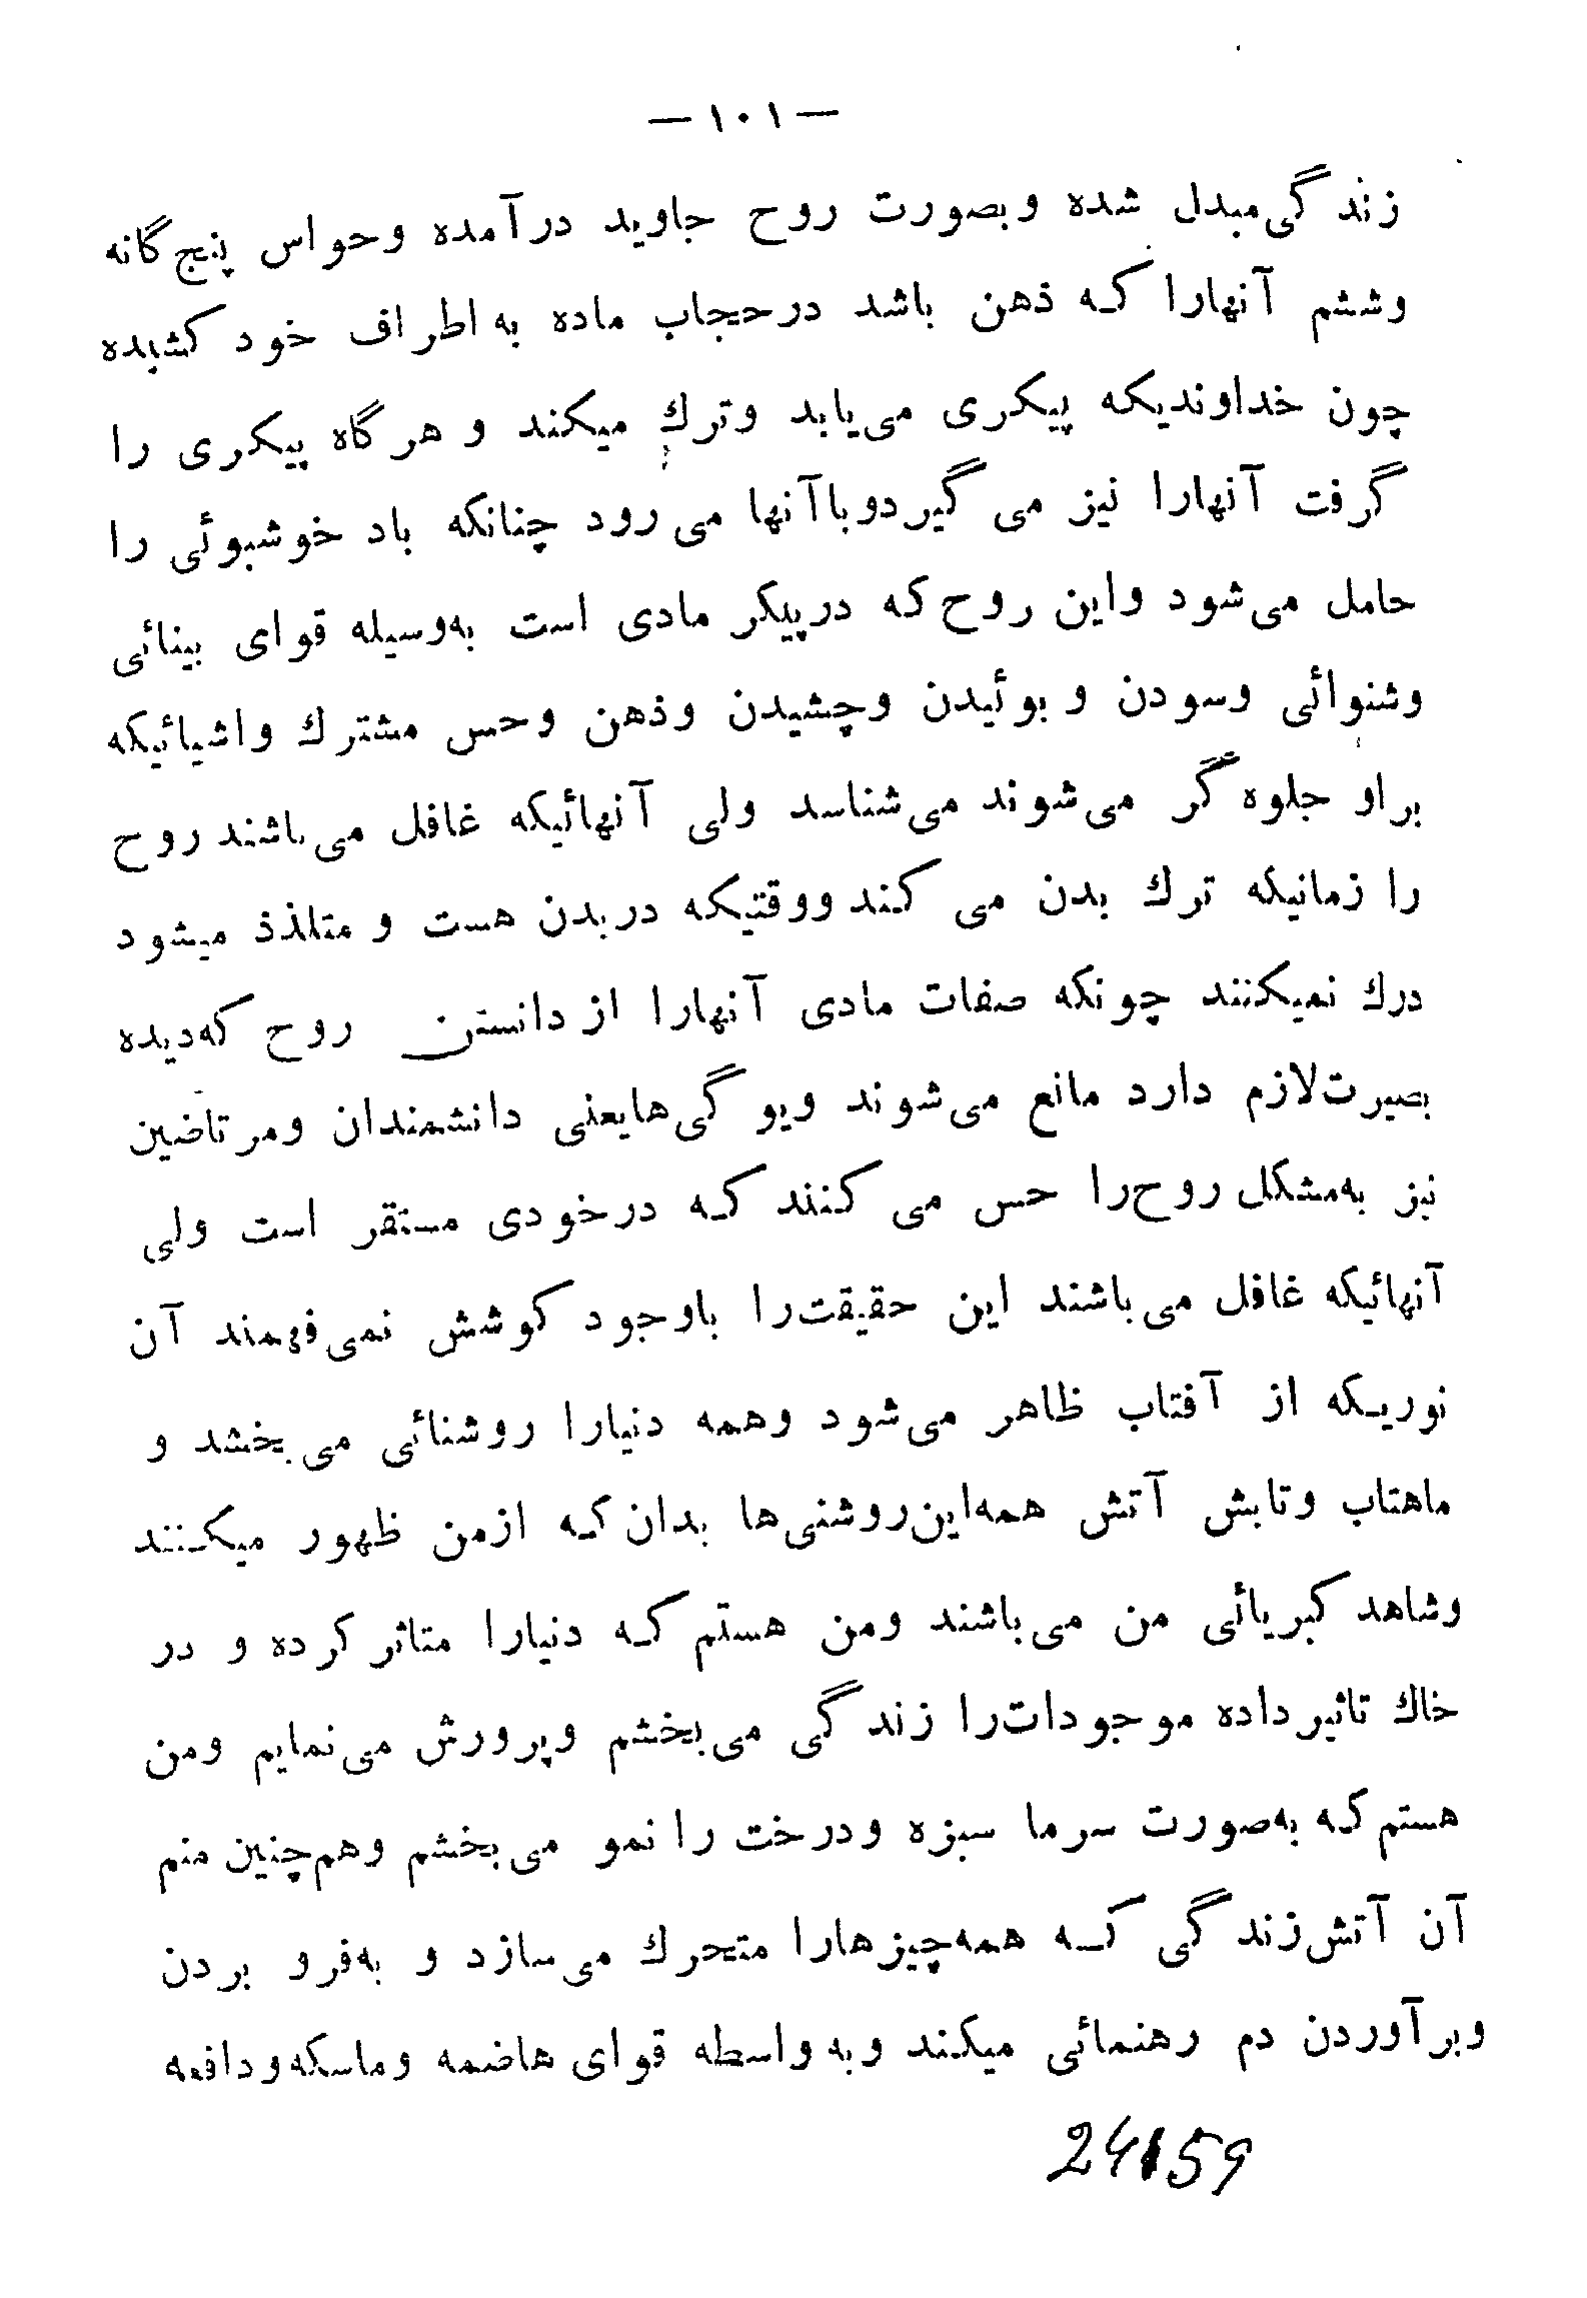 — ۱۰۱ —
زندگی‌مبدل شده وبصورت روح جاوید درآمده وحواس پنج‌گانه
وششم آنهارا که ذهن باشد درحجاب ماده به اطراف خود کشیده
چون خداوندیکه پیکری می‌یابد وترك میکند و هرگاه پیکری را
گرفت آنهارا نیز می گیردوباآنها می‌رود چنانکه باد خوشبوئی را
حامل می‌شود واین روح که درپیکر مادی است به‌وسیله قوای بینائی
وشنوائی وسودن و بوئیدن وچشیدن وذهن وحس مشترك واشیائیکه
براو جلوه گر می‌شوند می‌شناسد ولی آنهائیکه غافل می‌باشند روح
را زمانیکه ترك بدن می کند ووقتیکه دربدن هست و متلذذ میشود
درك نمیکنند چونکه صفات مادی آنهارا از دانستن روح که‌دیده
بصیرت‌لازم دارد مانع می‌شوند ویوگی‌هایعنی دانشمندان ومرتاضین
نیز به‌مشکل روح‌را حس می کنند که درخودی مستقر است ولی
آنهائیکه غافل می‌باشند این حقیقت‌را باوجود کوشش نمی‌فهمند آن
نوریکه از آفتاب ظاهر می‌شود وهمه دنیارا روشنائی می‌بخشد و
ماهتاب وتابش آتش همه‌این‌روشنی‌ها بدان‌که ازمن ظهور میکنند
وشاهد کبریائی من می‌باشند ومن هستم که دنیارا متاثر کرده و در
خاك تاثیرداده موجودات‌را زندگی می‌بخشم وپرورش می‌نمایم ومن
هستم‌که به‌صورت سرما سبزه ودرخت را نمو می‌بخشم وهم‌چنین منم
آن آتش‌زندگی که همه‌چیزهارا متحرك می‌سازد و به‌فرو بردن
وبرآوردن دم رهنمائی میکند وبه واسطه قوای هاضمه وماسکه‌ودافعه
24159